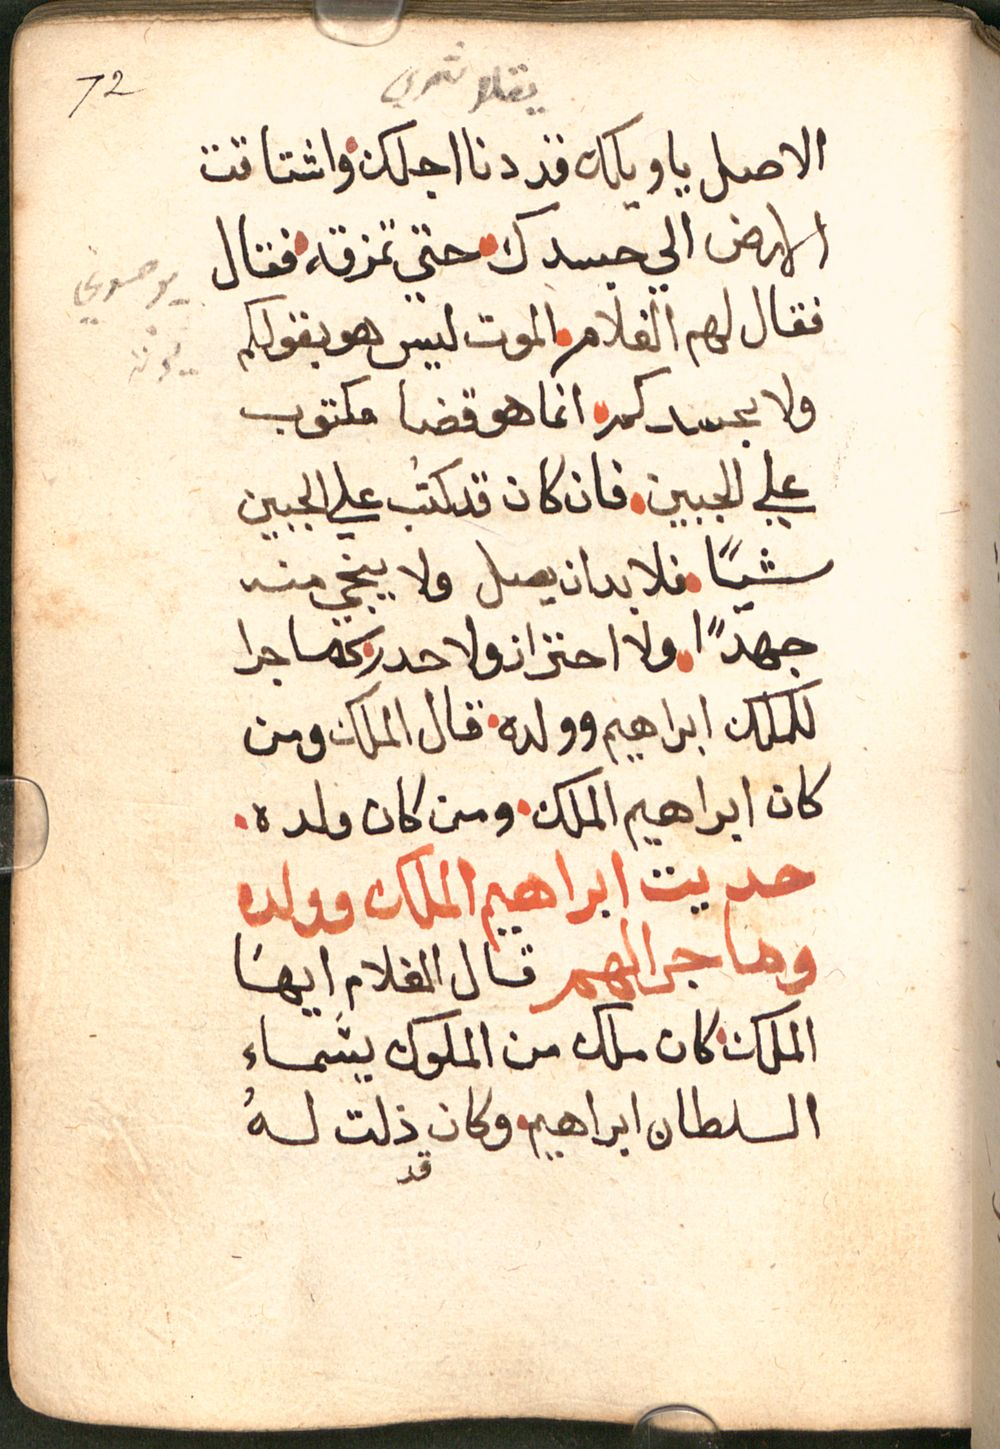 72
الاصل ياويلك قد دنا اجلك واشتاقت
الارض الي جسدك حتي تمزقه فقال
فقال لهم الغلام الموت ليس هو بقولكم
ولا بحسدكم انما هو قضا مكتوب
علي الجبين فان كان قد كتب علي الجبين
شيًا فلا بد ان يصل ولا ينجي منه
جهدًا ولا احتراز ولا حدر كما جرا
للملك ابراهيم وولده قال الملك ومن
كان ابراهيم الملك ومن كان ولده
حديت ابراهيم الملك وولده
وما جرا لهم قال الغلام ايها
الملك كان ملك من الملوك يسماء
السلطان ابراهيم وكان ذلت لهُ
قد